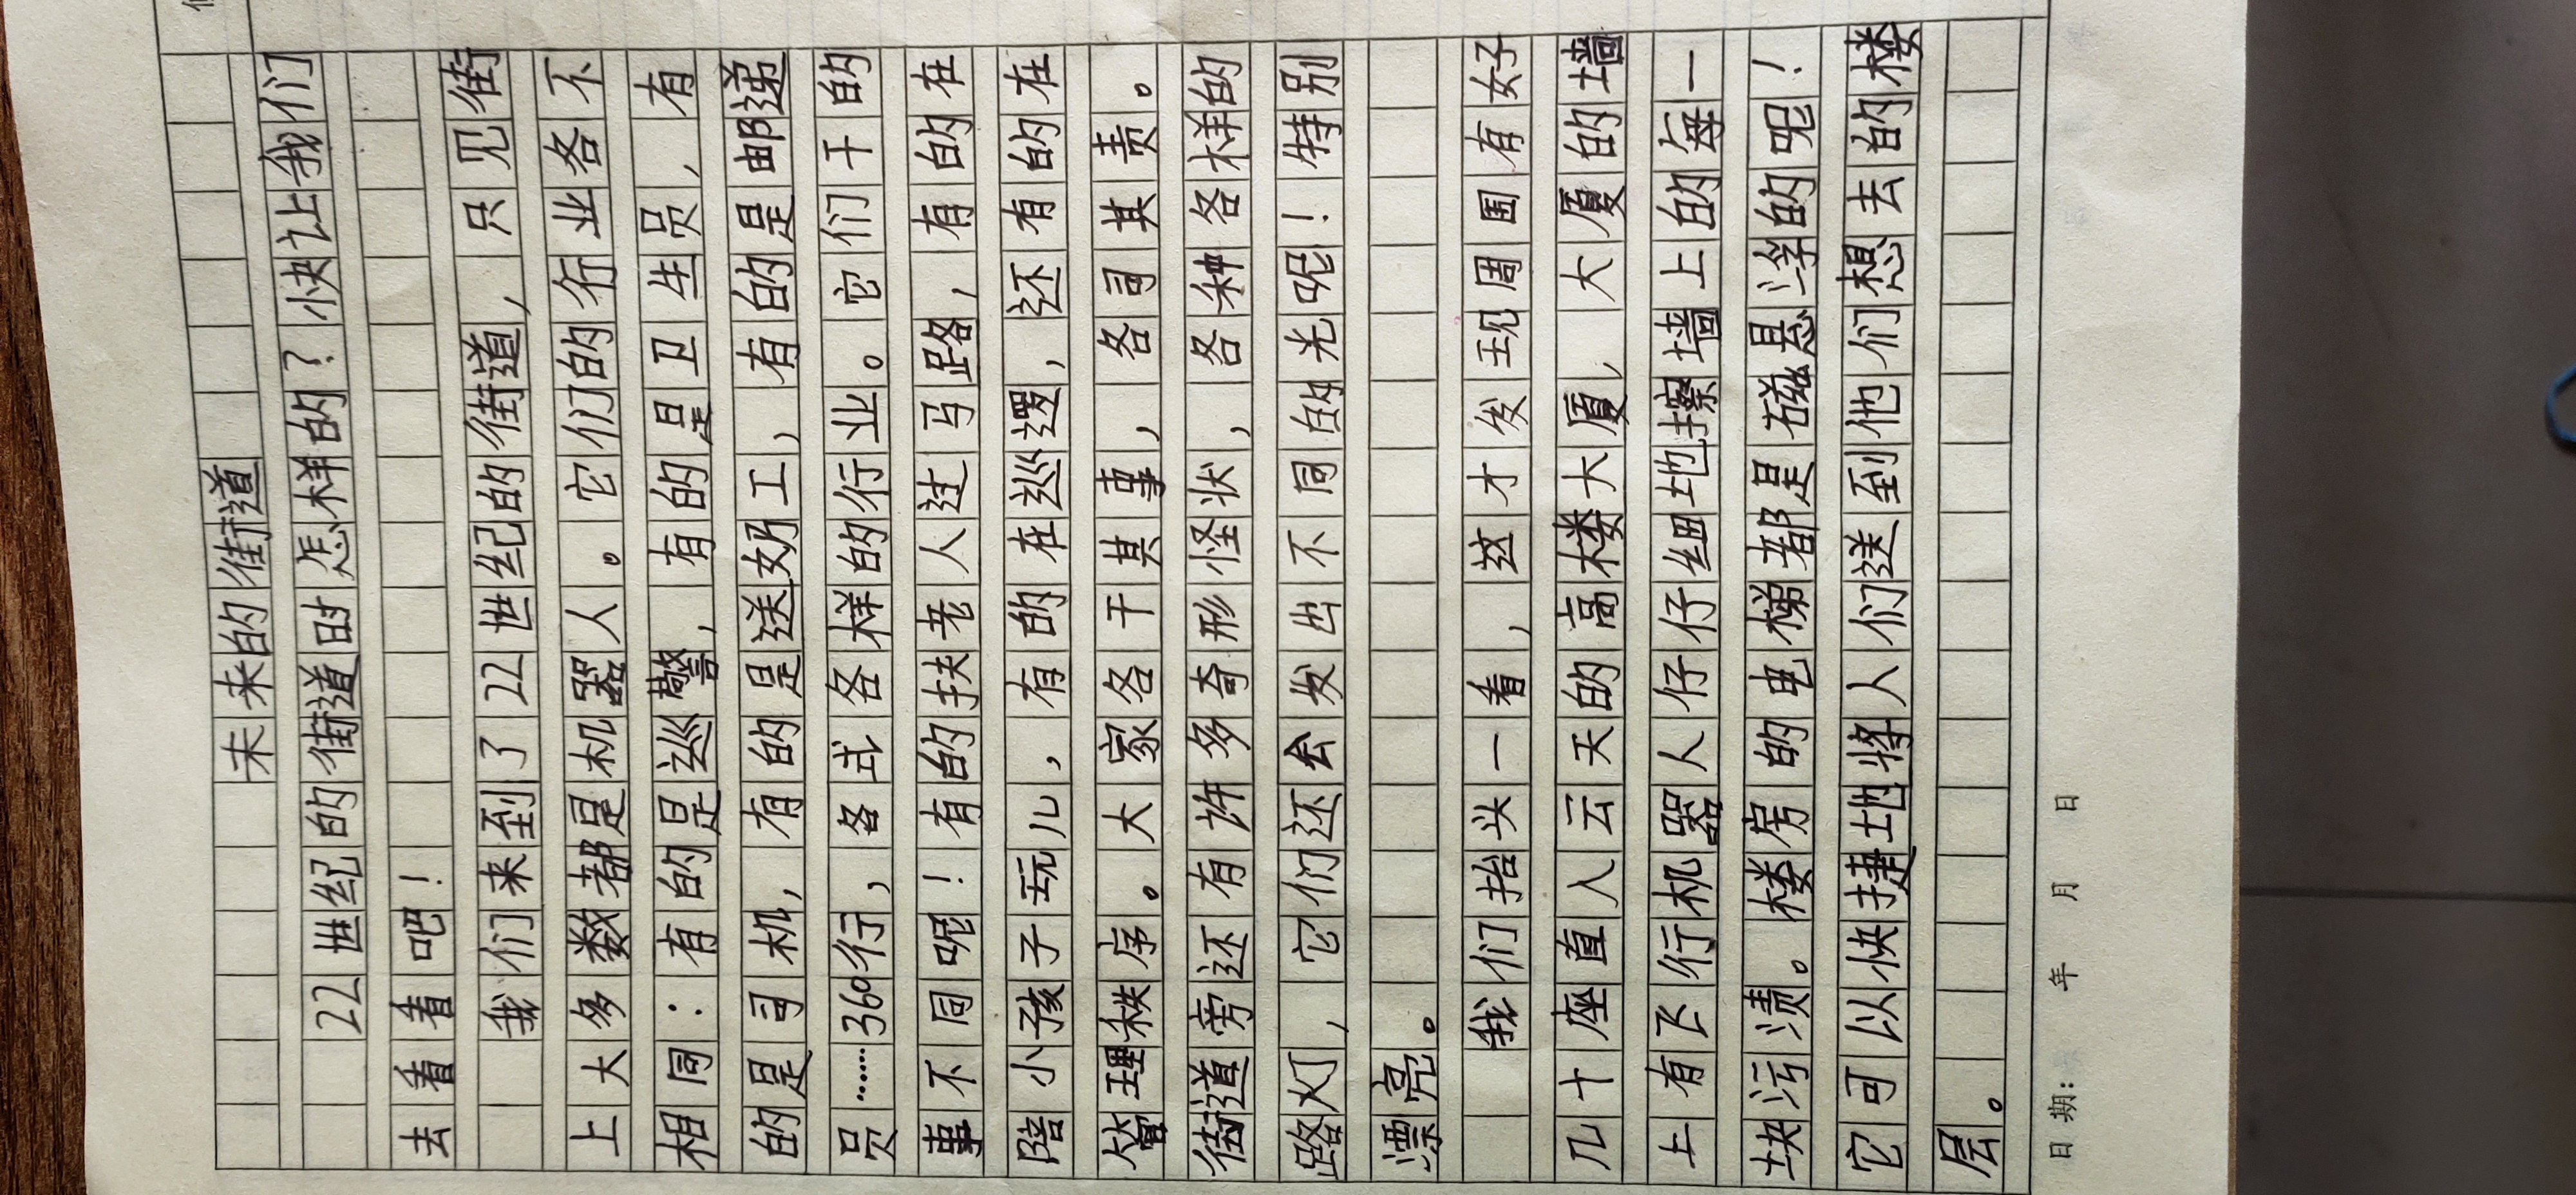 未来的街道
22世纪的街道时怎样的?快让我们
去看看吧!
我们来到了22世纪的街道,只见街
上大多数都是机器人。它们的行业各不
相同:有的是巡警,有的是卫生员,有
的是司机,有的是送奶工,有的是邮递
员……360行,各式各样的行业。它们干的
事不同呢!有的扶老人过马路,有的在
陪小孩子玩儿,有的在巡逻,还有的在
管理秩序。大家各干其事,各司其责。
街道旁还有许多奇形怪状,各种各样的
路灯,它们还会发出不同的光呢!特别
漂亮。
我们抬头一看,这才发现周围有好
几十座直入云天的高楼大厦,大厦的墙
上有飞行机器人仔仔细地擦墙上的每一
块污渍。楼房的电梯都是磁悬浮的呢!
它可以快捷地将人们送到他们想去的楼
层。
日期: 年 月 日